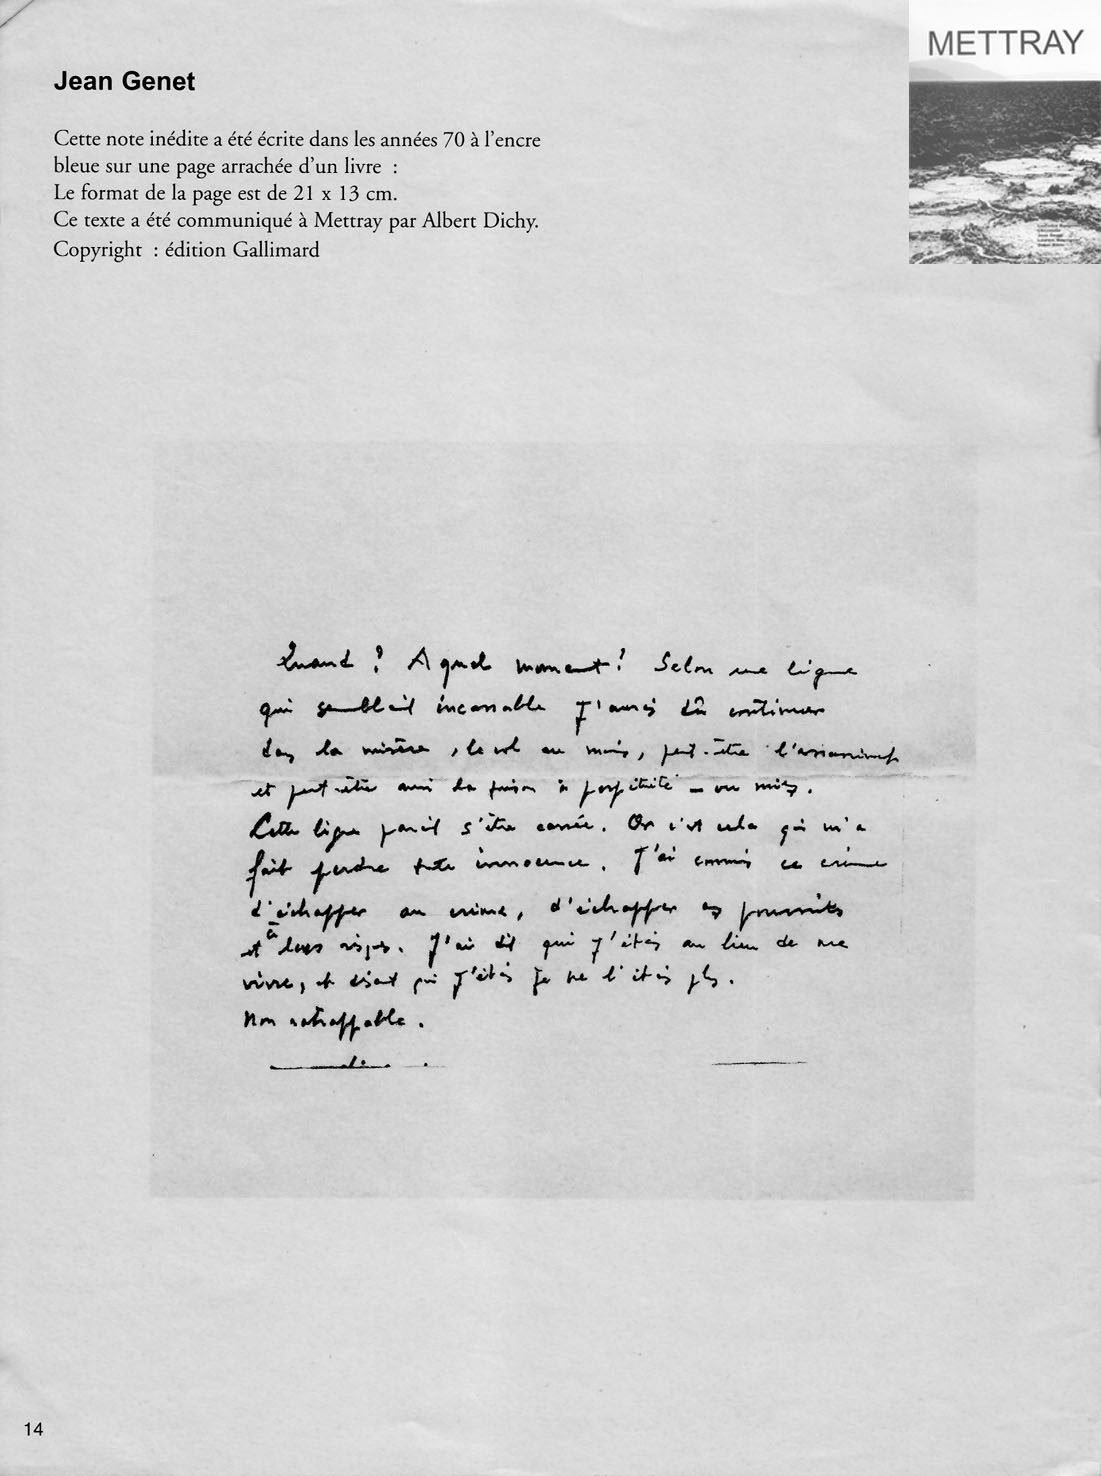 METTRAY
Jean Genet
Cette note inédite a été écrite dans les années 70 à l'encre
bleue sur une page arrachée d'un livre :
Le format de la page est de 21 x 13 cm.
Ce texte a été communiqué à Mettray par Albert Dichy.
Copyright : édition Gallimard
Quand ? A quel moment ? Selon une ligne
qui semblait incassable j'aurais dû continuer
dans la misère, le vol au moins, peut-être l'assassinat
et peut-être aussi la prison à perpétuité - ou mieux.
Cette ligne paraît s'être cassée. Or c'est cela qui m'a
fait perdre toute innocence. J'ai commis ce crime
d'échapper au crime, d'échapper aux poursuites
et à leurs risques. J'ai dit qui j'étais au lieu de me
vivre, et disant qui j'étais je ne l'étais plus.
Non rattrappable.
14